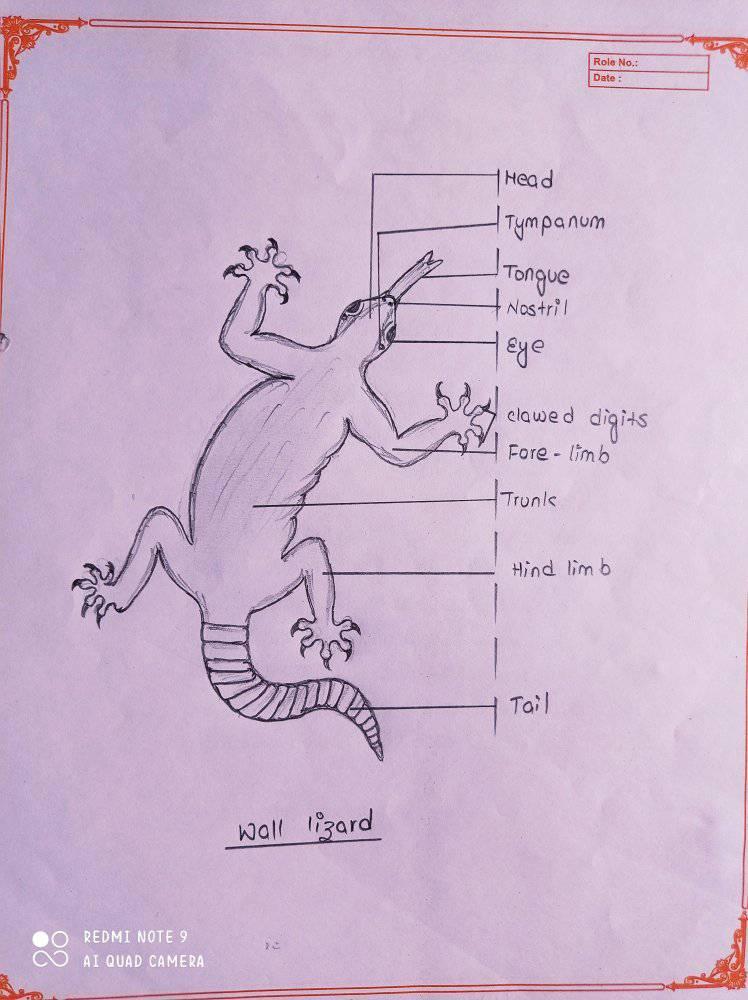 Role No.:
Date :
Head
Tympanum
Tongue
Nostril
Eye
clawed digits
Fore-limb
Trunk
Hind limb
Tail
Wall lizard
REDMI NOTE 9
AI QUAD CAMERA